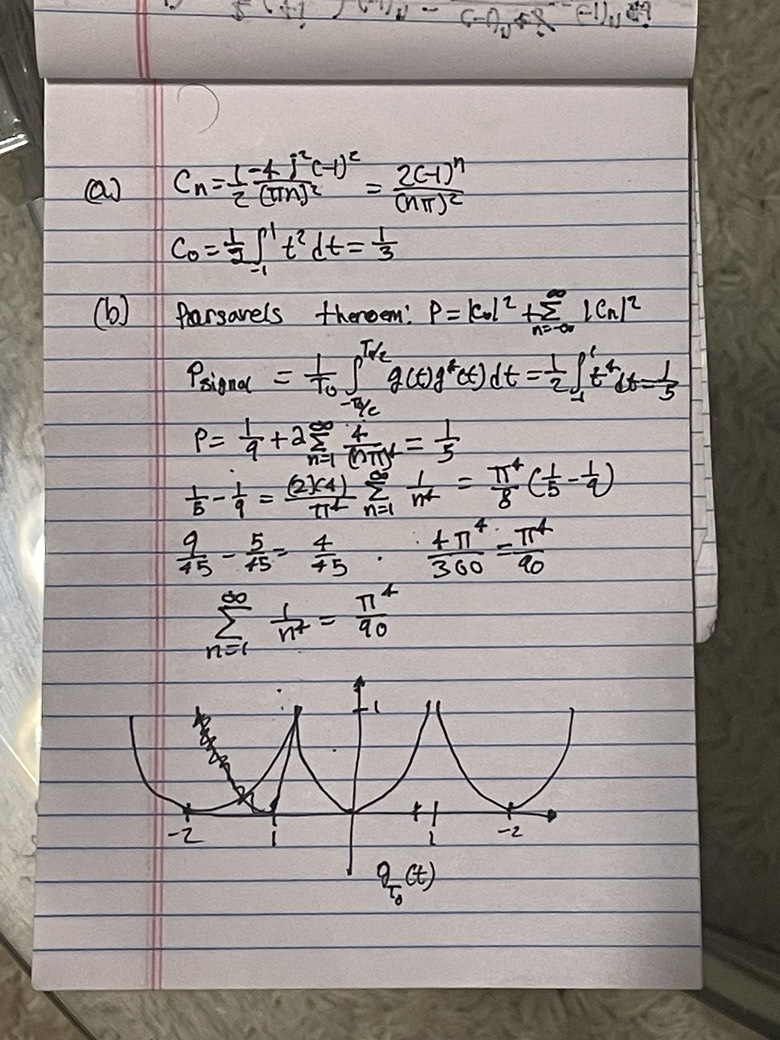 (a) Cn = 1/2 -4 j²(-1)²/(πn)² = 2(-1)ⁿ/(nπ)²
C₀ = 1/2 ∫₋₁¹ t² dt = 1/3
(b) Parsarels theroem: P = |C₀|² + Σₙ₌₋∞^∞ |Cn|²
Psignal = 1/T₀ ∫_{-T₀/2}^{T₀/2} g(t)g*(t) dt = 1/2 ∫₋₁¹ t⁴ dt = 1/5
P = 1/9 + 2 Σₙ₌₁^∞ 4/(nπ)⁴ = 1/5
1/5 - 1/9 = (2)(4)/π⁴ Σₙ₌₁^∞ 1/n⁴ = π⁴/8 (1/5 - 1/9)
9/45 - 5/45 = 4/45 . 4π⁴/360 = π⁴/90
Σₙ₌₁^∞ 1/n⁴ = π⁴/90
1
-2 1 1 -2
g_{T₀}(t)